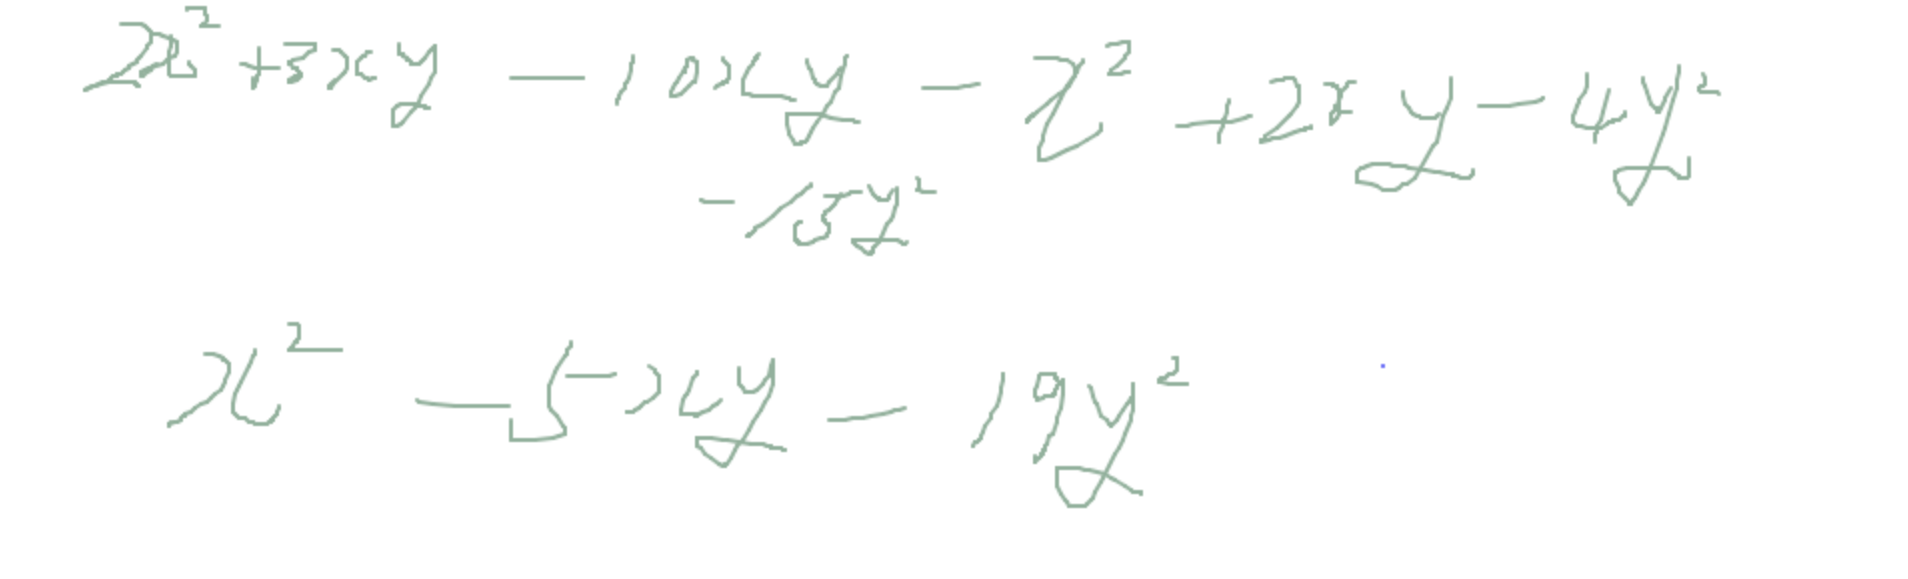 2x² + 3xy - 10xy - x² + 2xy - 4y²
- 15y²
x² - 5xy - 19y²